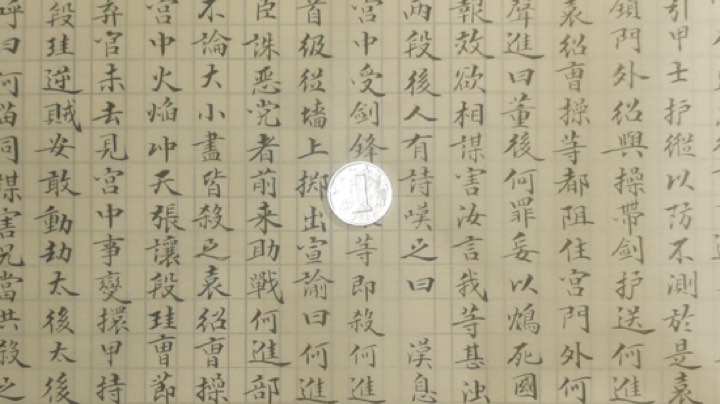 引甲士护縱以防不測於是袁
鎖門外紹與操帶劍护送何進
袁紹曹操等都阻住宮門外何
聲進曰董後何罪妄以鴆死國
報效欲相謀害汝言我等甚浊
兩段後人有詩嘆之曰 漢息
宮中受剑鋒等即殺何進
首級從墙上掷出宣諭曰何進
臣誅恶党者前来助戰何進部
不論大小盡皆殺之袁紹曹操
宮中火焰冲天張讓段珪曹節
弃官未去見宮中事變擐甲持
段珪逆賊安敢動劫太後太後
呼曰何苗同謀害兄當共殺之
1